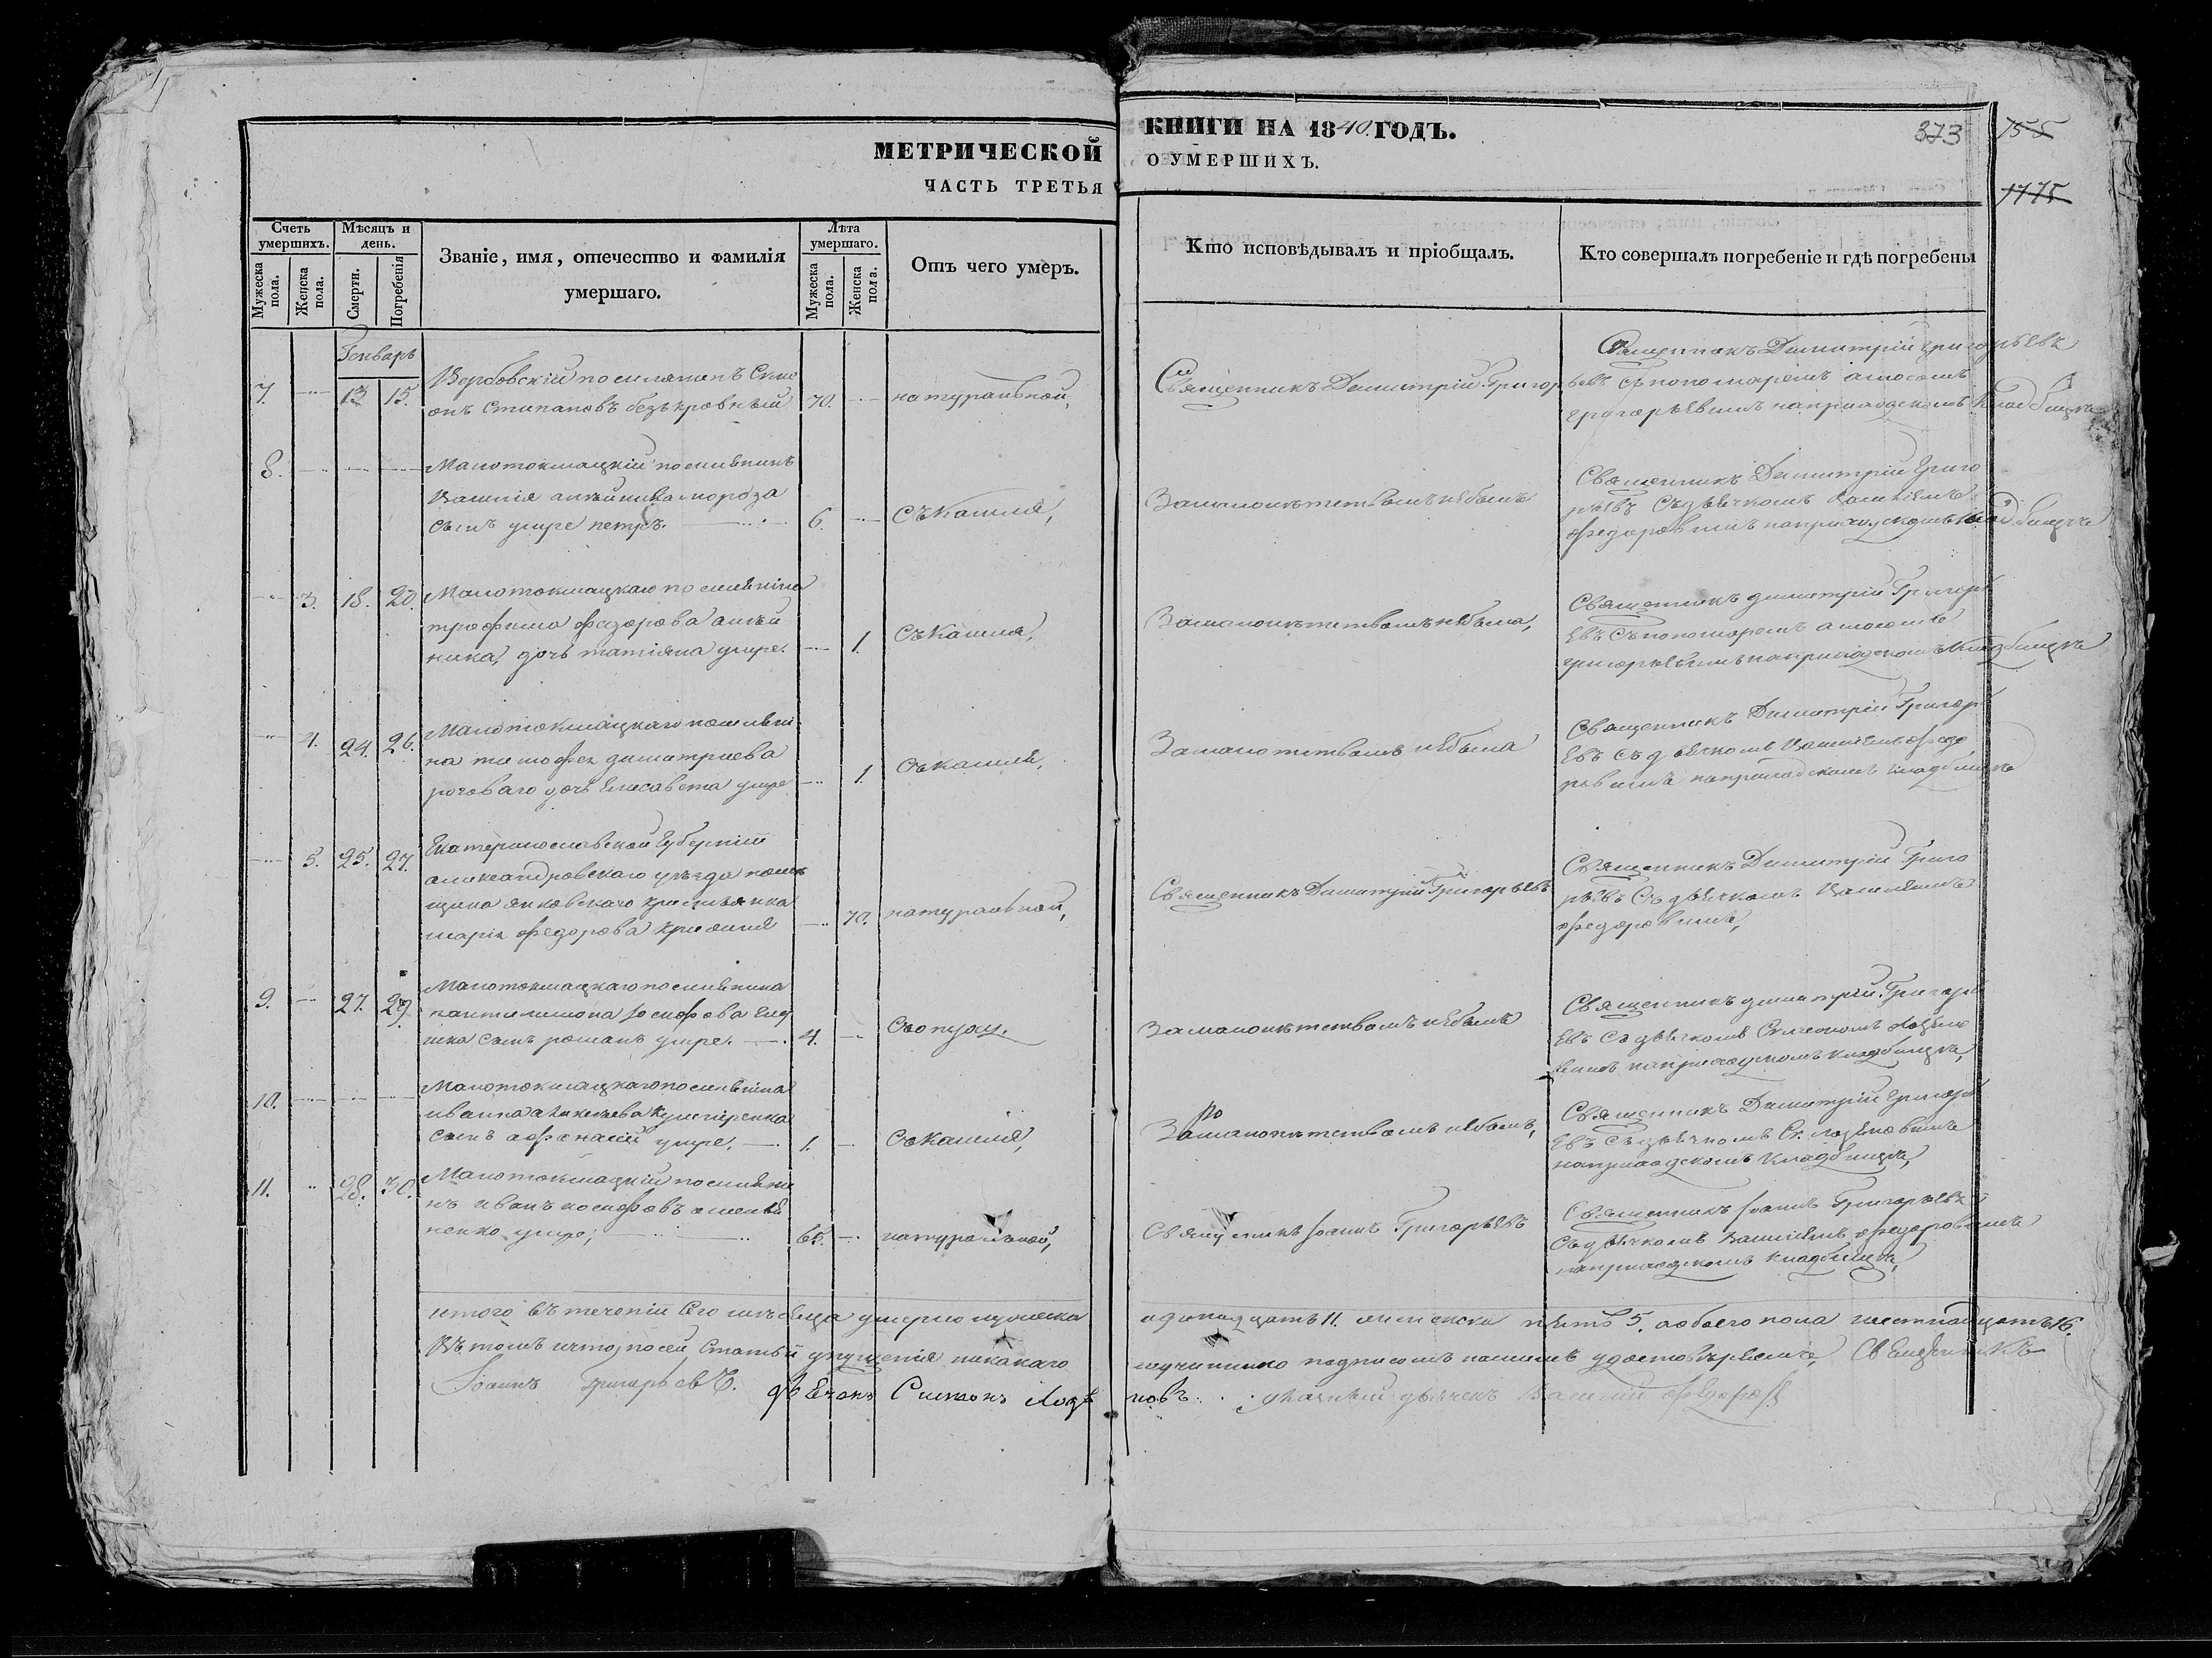 МЕТРИЧЕСКОЙ
ЧАСТЬ ТРЕТЬЯ
КНИГИ НА 1840. ГОДЪ.
О УМЕРШИХЪ.
373
155
1775
Счетъ умершихъ.
Мужеска пола.
Женска пола.
Мѣсяцъ и день.
Смерти.
Погребенія
Званіе, имя, отечество и фамилія
умершаго.
Лѣта умершаго.
Мужеска пола.
Женска пола.
Отъ чего умеръ.
Кто исповѣдывалъ и пріобщалъ.
Кто совершалъ погребеніе и гдѣ погребены
Генварь
7. 13 15.
Вербовскій поселянинъ Симе
онъ Стипановъ безъкровный 70. натуральной,
Священникъ Димитрій Григорьевъ
Священникъ Димитрій Григорьевъ
съ пономаремъ амосомъ
григорьевымъ наприходскомъ Кладбищѣ
8.
Малотокмацкій поселянинъ
Василія олейника мороза
сынъ умре петръ. 6. Съ Кашля,
Замалолетствомъ небылъ
Священникъ Димитрій Григо
рьевъ Съдьячкомъ Василіемъ
федоровымъ наприходскомъ Кладбищѣ
3. 18. 20.
Малотокмацкаго поселянина
трофима федорова олей
ника, дочь татіяна умре. 1. Съ Кашля,
Замалолетствомъ небыла,
Священникъ димитрій Григорь
евъ Съпономаромъ амосомъ
григорьевымъ наприходскомъ Кладбищѣ
4. 24. 26.
Малотокмацкаго поселяни
на тимофея димитриева
рогового дочь Елисавета умре 1. Съкашля,
Замалолетствомъ небыла
Священникъ Димитрій Григорь
евъ Съ дьячкомъ Василіемъ федо
ровымъ наприходскомъ кладбищѣ
5. 25. 27.
Екатеринославской Губерніи
александровскаго уѣзда помѣ
щика янковскаго крестьянка
марія федорова 70. натуральной,
Священникъ Димитрій Григорьевъ
Священникъ Димитрій Григо
рьевъ Съ дьячкомъ Василіемъ
федоровымъ,
9. 27. 29.
Малотокмацкаго поселянина
пантилимона іосифова
сынъ романъ умре. 4. Съопуху.
Замалолетствомъ небылъ
Священникъ димитрій Григорь
евъ Съ дьячкомъ Симеономъ Лозѣно
вымъ наприходскомъ кладбищѣ,
10.
Малотокмацкаго поселянина
ивана алексѣева Кушнеренка
сынъ афонасій умре. 1. Съ Кашля,
Замалолетствомъ небылъ,
Священникъ Димитрій Григорь
евъ Съдьячкомъ Си. Лозѣновымъ
наприходскомъ Кладбищѣ,
11. 28. 30.
Малотокмацкій поселяни
нъ иванъ иосифовъ омелья
ненко умре; 65. натуральной,
Священникъ Іоаннъ Григорьевъ
Священникъ Іоаннъ Григорьевъ
Съдьячкомъ Василіемъ федоровымъ
наприходскомъ кладбищѣ,
итого втеченіи Сего мѣсяца умерло мужеска одинадцать 11. аженска пять 5. аобоего пола шестнадцать 16.
Въ томъ что, посей Статьи упущенія никакого неучинино подписомъ нашимъ удостовѣряемъ, Священникъ
Іоаннъ Григорьевъ. дьячокъ Симеонъ Лозѣновъ. указный дьячекъ Василий федоровъ